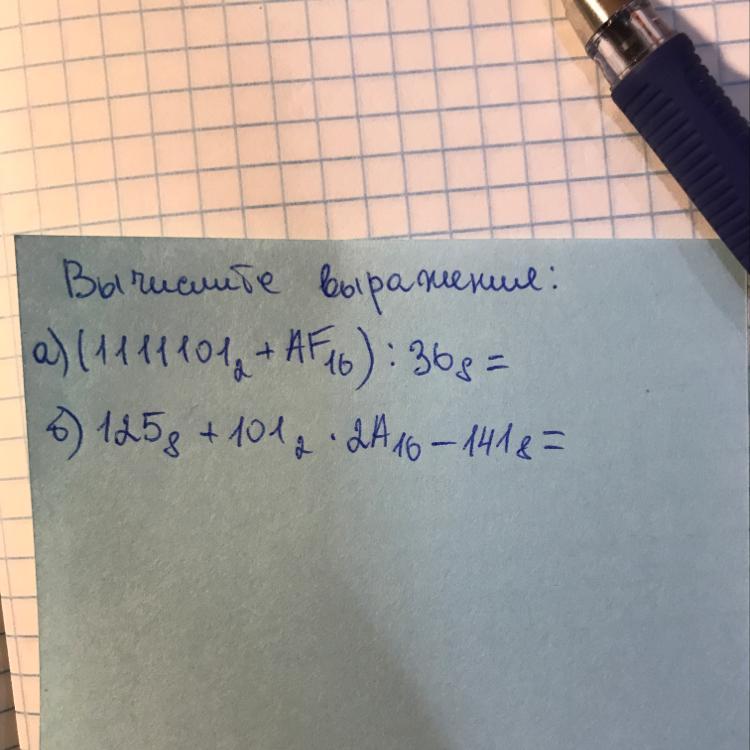 Вычислите выражения:
а) (1111101₂ + AF₁₆) : 36₈ =
б) 125₈ + 101₂ · 2A₁₆ − 141₈ =